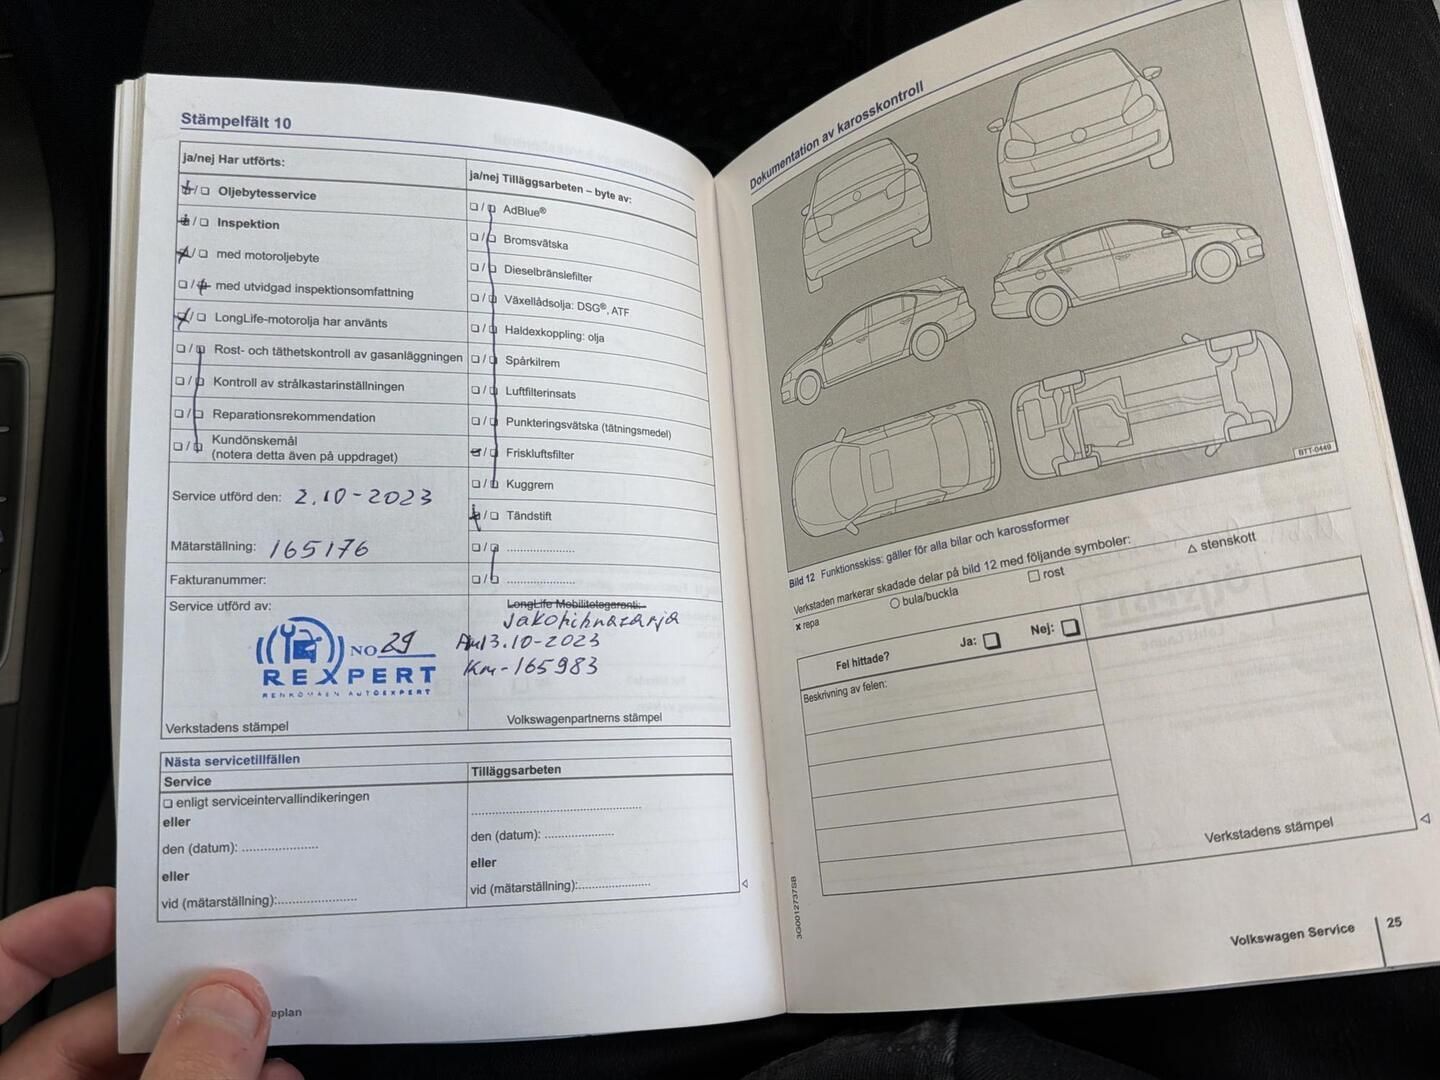 Stämpelfält 10
ja/nej Har utförts:
Oljebytesservice
Inspektion
med motoroljebyte
med utvidgad inspektionsomfattning
LongLife-motorolja har använts
Rost- och täthetskontroll av gasanläggningen
Kontroll av strålkastarinställningen
Reparationsrekommendation
Kundönskemål
(notera detta även på uppdraget)
Service utförd den: 2.10-2023
Mätarställning: 165176
Fakturanummer:
Service utförd av:
NO 29
REXPERT
AUTOEXPERT
Verkstadens stämpel
ja/nej Tilläggsarbeten – byte av:
AdBlue®
Bromsvätska
Dieselbränslefilter
Växellådsolja: DSG®, ATF
Haldexkoppling: olja
Spårkilrem
Luftfilterinsats
Punkteringsvätska (tätningsmedel)
Friskluftsfilter
Kuggrem
Tändstift
......................
......................
LongLife Mobilitetsgaranti:
13.10-2023
Km-165983
Volkswagenpartnerns stämpel
Nästa servicetillfällen
Service
enligt serviceintervallindikeringen
eller
den (datum): ......................
eller
vid (mätarställning):......................
Tilläggsarbeten
................................................
den (datum): ......................
eller
vid (mätarställning):......................
eplan
Dokumentation av karosskontroll
BTT-0449
Bild 12 Funktionsskiss: gäller för alla bilar och karossformer
Verkstaden markerar skadade delar på bild 12 med följande symboler:
x repa ○ bula/buckla □ rost △ stenskott
Fel hittade? Ja: Nej:
Beskrivning av felen:
Verkstadens stämpel
3G0012737SB
Volkswagen Service 25